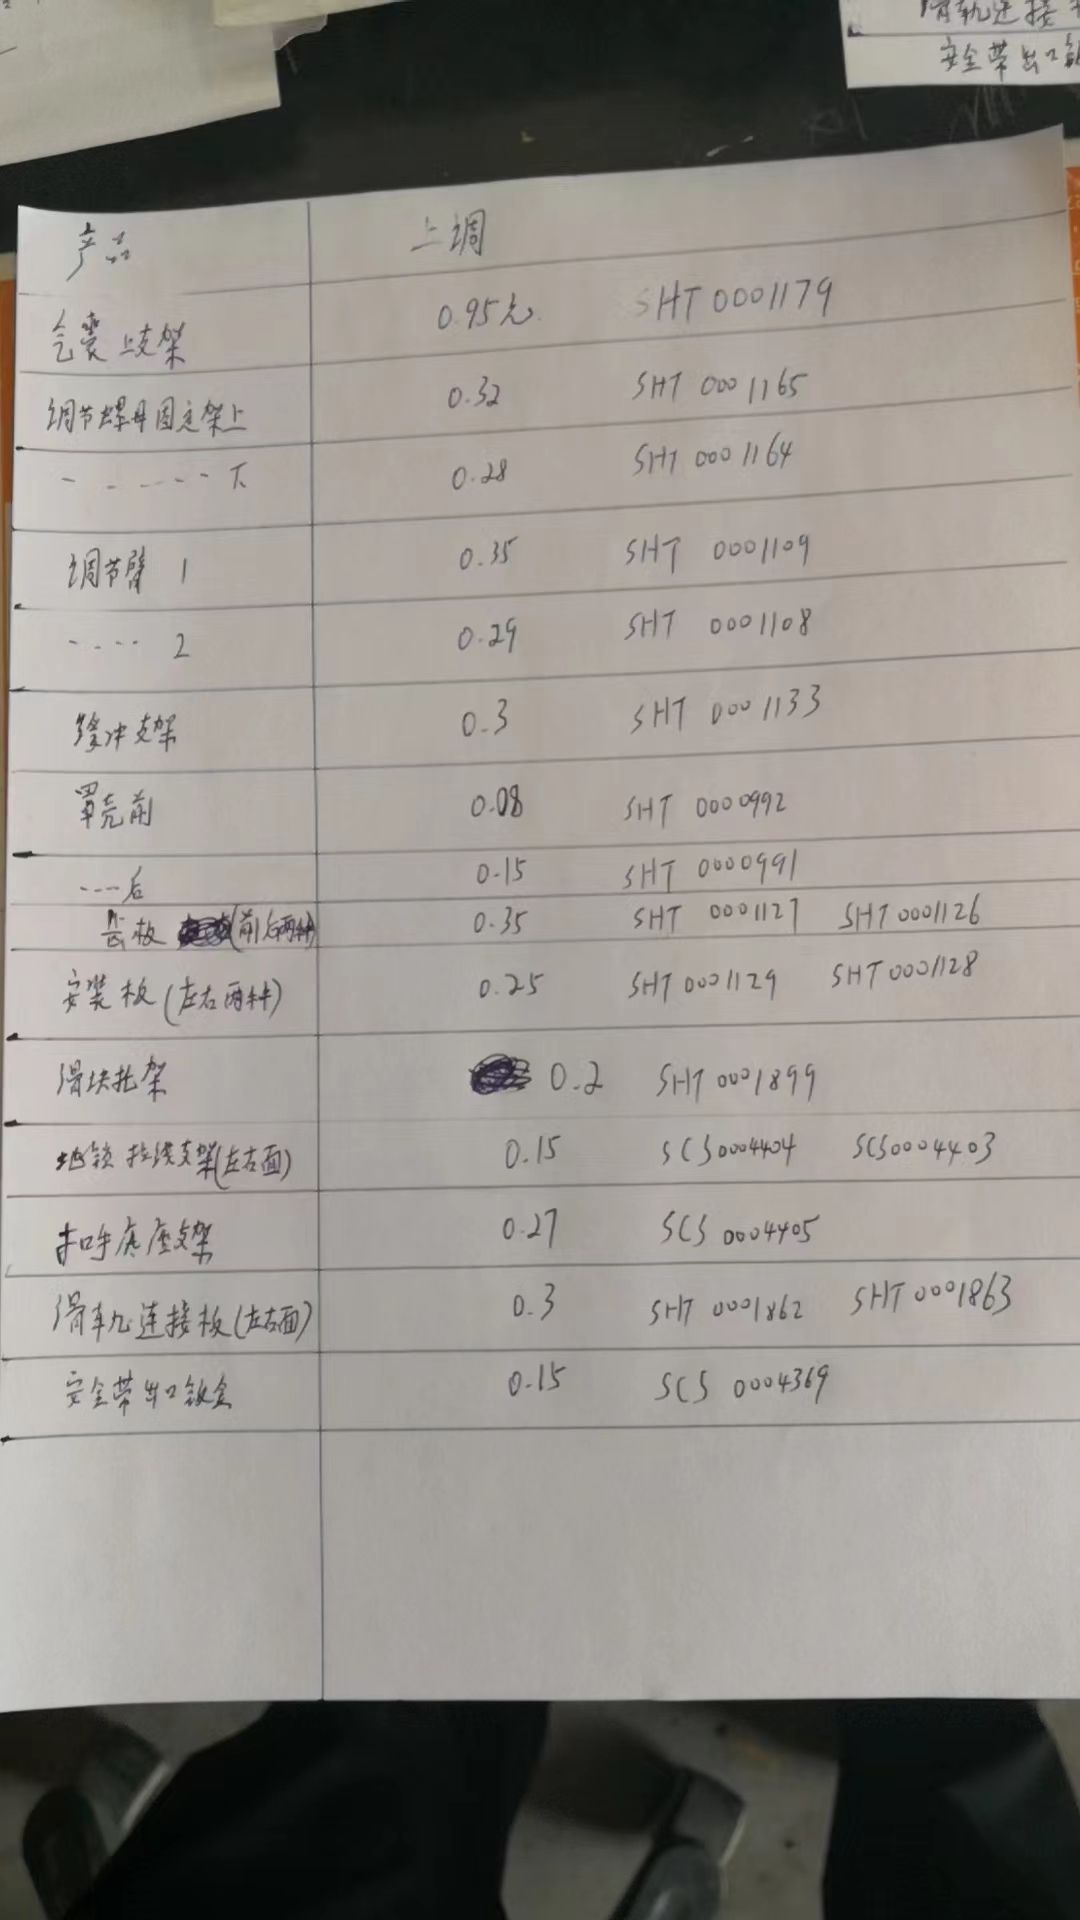 滑轨连接
安全带出口钣
产品 上调
气囊上支架 0.95元 SHT0001179
调节螺母固定架上 0.32 SHT 0001165
- - - - - - 下 0.28 SHT 0001164
调节臂 1 0.35 SHT 0001109
- - - - 2 0.29 SHT 0001108
缓冲支架 0.3 SHT 0001133
罩壳前 0.08 SHT 0000992
---后 0.15 SHT 0000991
齿板 (前后两种) 0.35 SHT 0001127 SHT0001126
安装板(左右两种) 0.25 SHT0001129 SHT0001128
滑块托架 0.2 SHT0001899
地锁拉线支架(左右面) 0.15 SCS0004404 SCS0004403
底座支架 0.27 SCS 0004405
滑轨连接板(左右面) 0.3 SHT 0001862 SHT0001863
安全带出口钣金 0.15 SCS 0004369